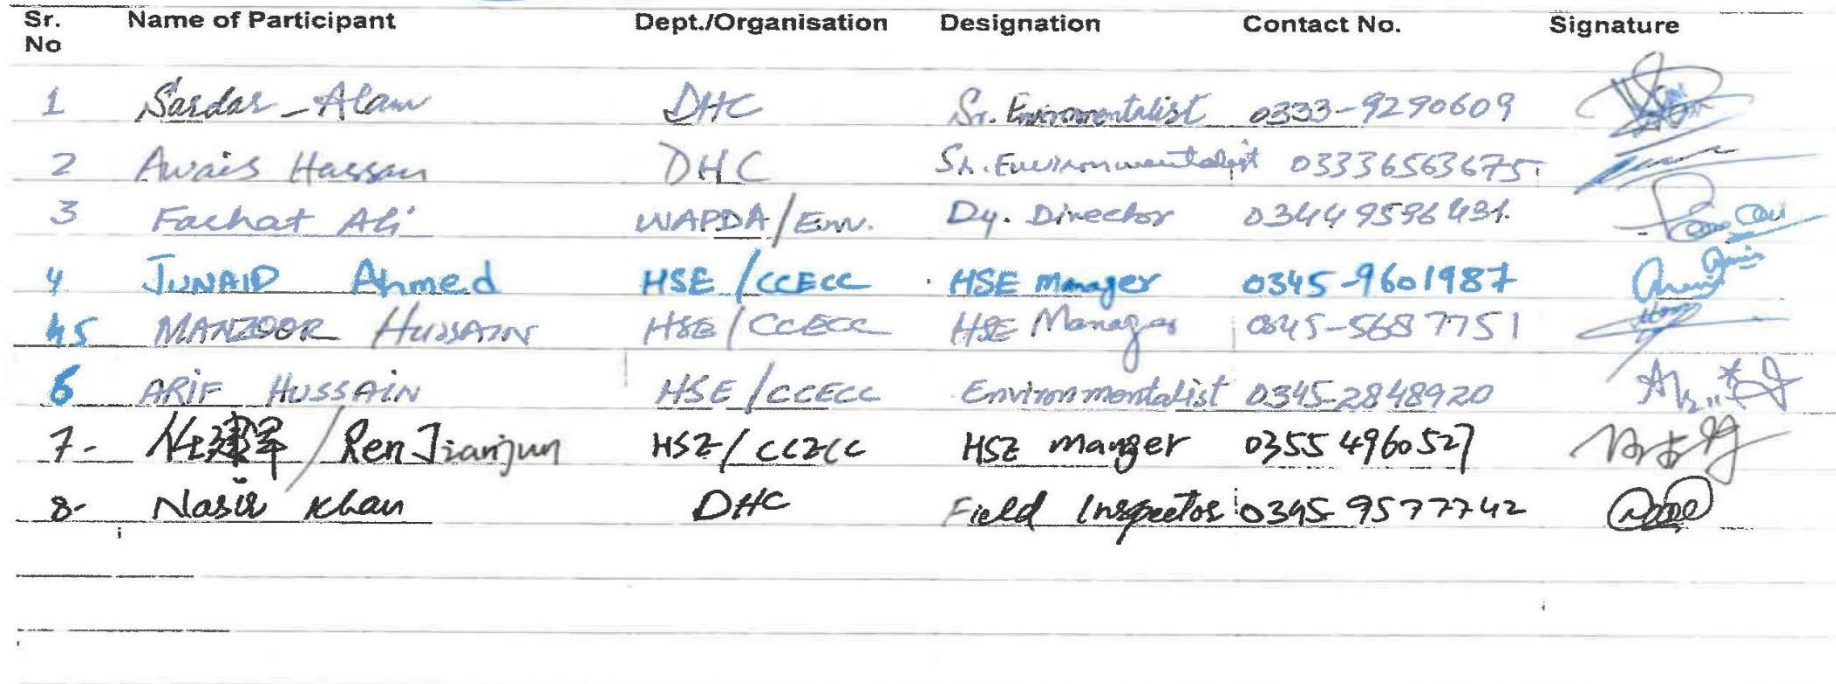 Sr. No Name of Participant Dept./Organisation Designation Contact No. Signature
1 Sardar - Alam DHC Sr. Environmentalist 0333-9290609
2 Awais Hassan DHC Sr. Environmentalist 03336563675
3 Fachat Ali WAPDA/Env. Dy. Director 03449596431.
4 JUNAID Ahmed HSE/CCECC HSE Manager 0345-9601987
5 MANZOOR HUSSAIN HSE/CCECC HSE Manager 0345-5687751
6 ARIF HUSSAIN HSE/CCECC Environmentalist 0345-2848920
7- 任建军/Ren Jianjun HSE/CCECC HSE manger 0355 4960527
8- Nasir Khan DHC Field Inspector 0345 9577742